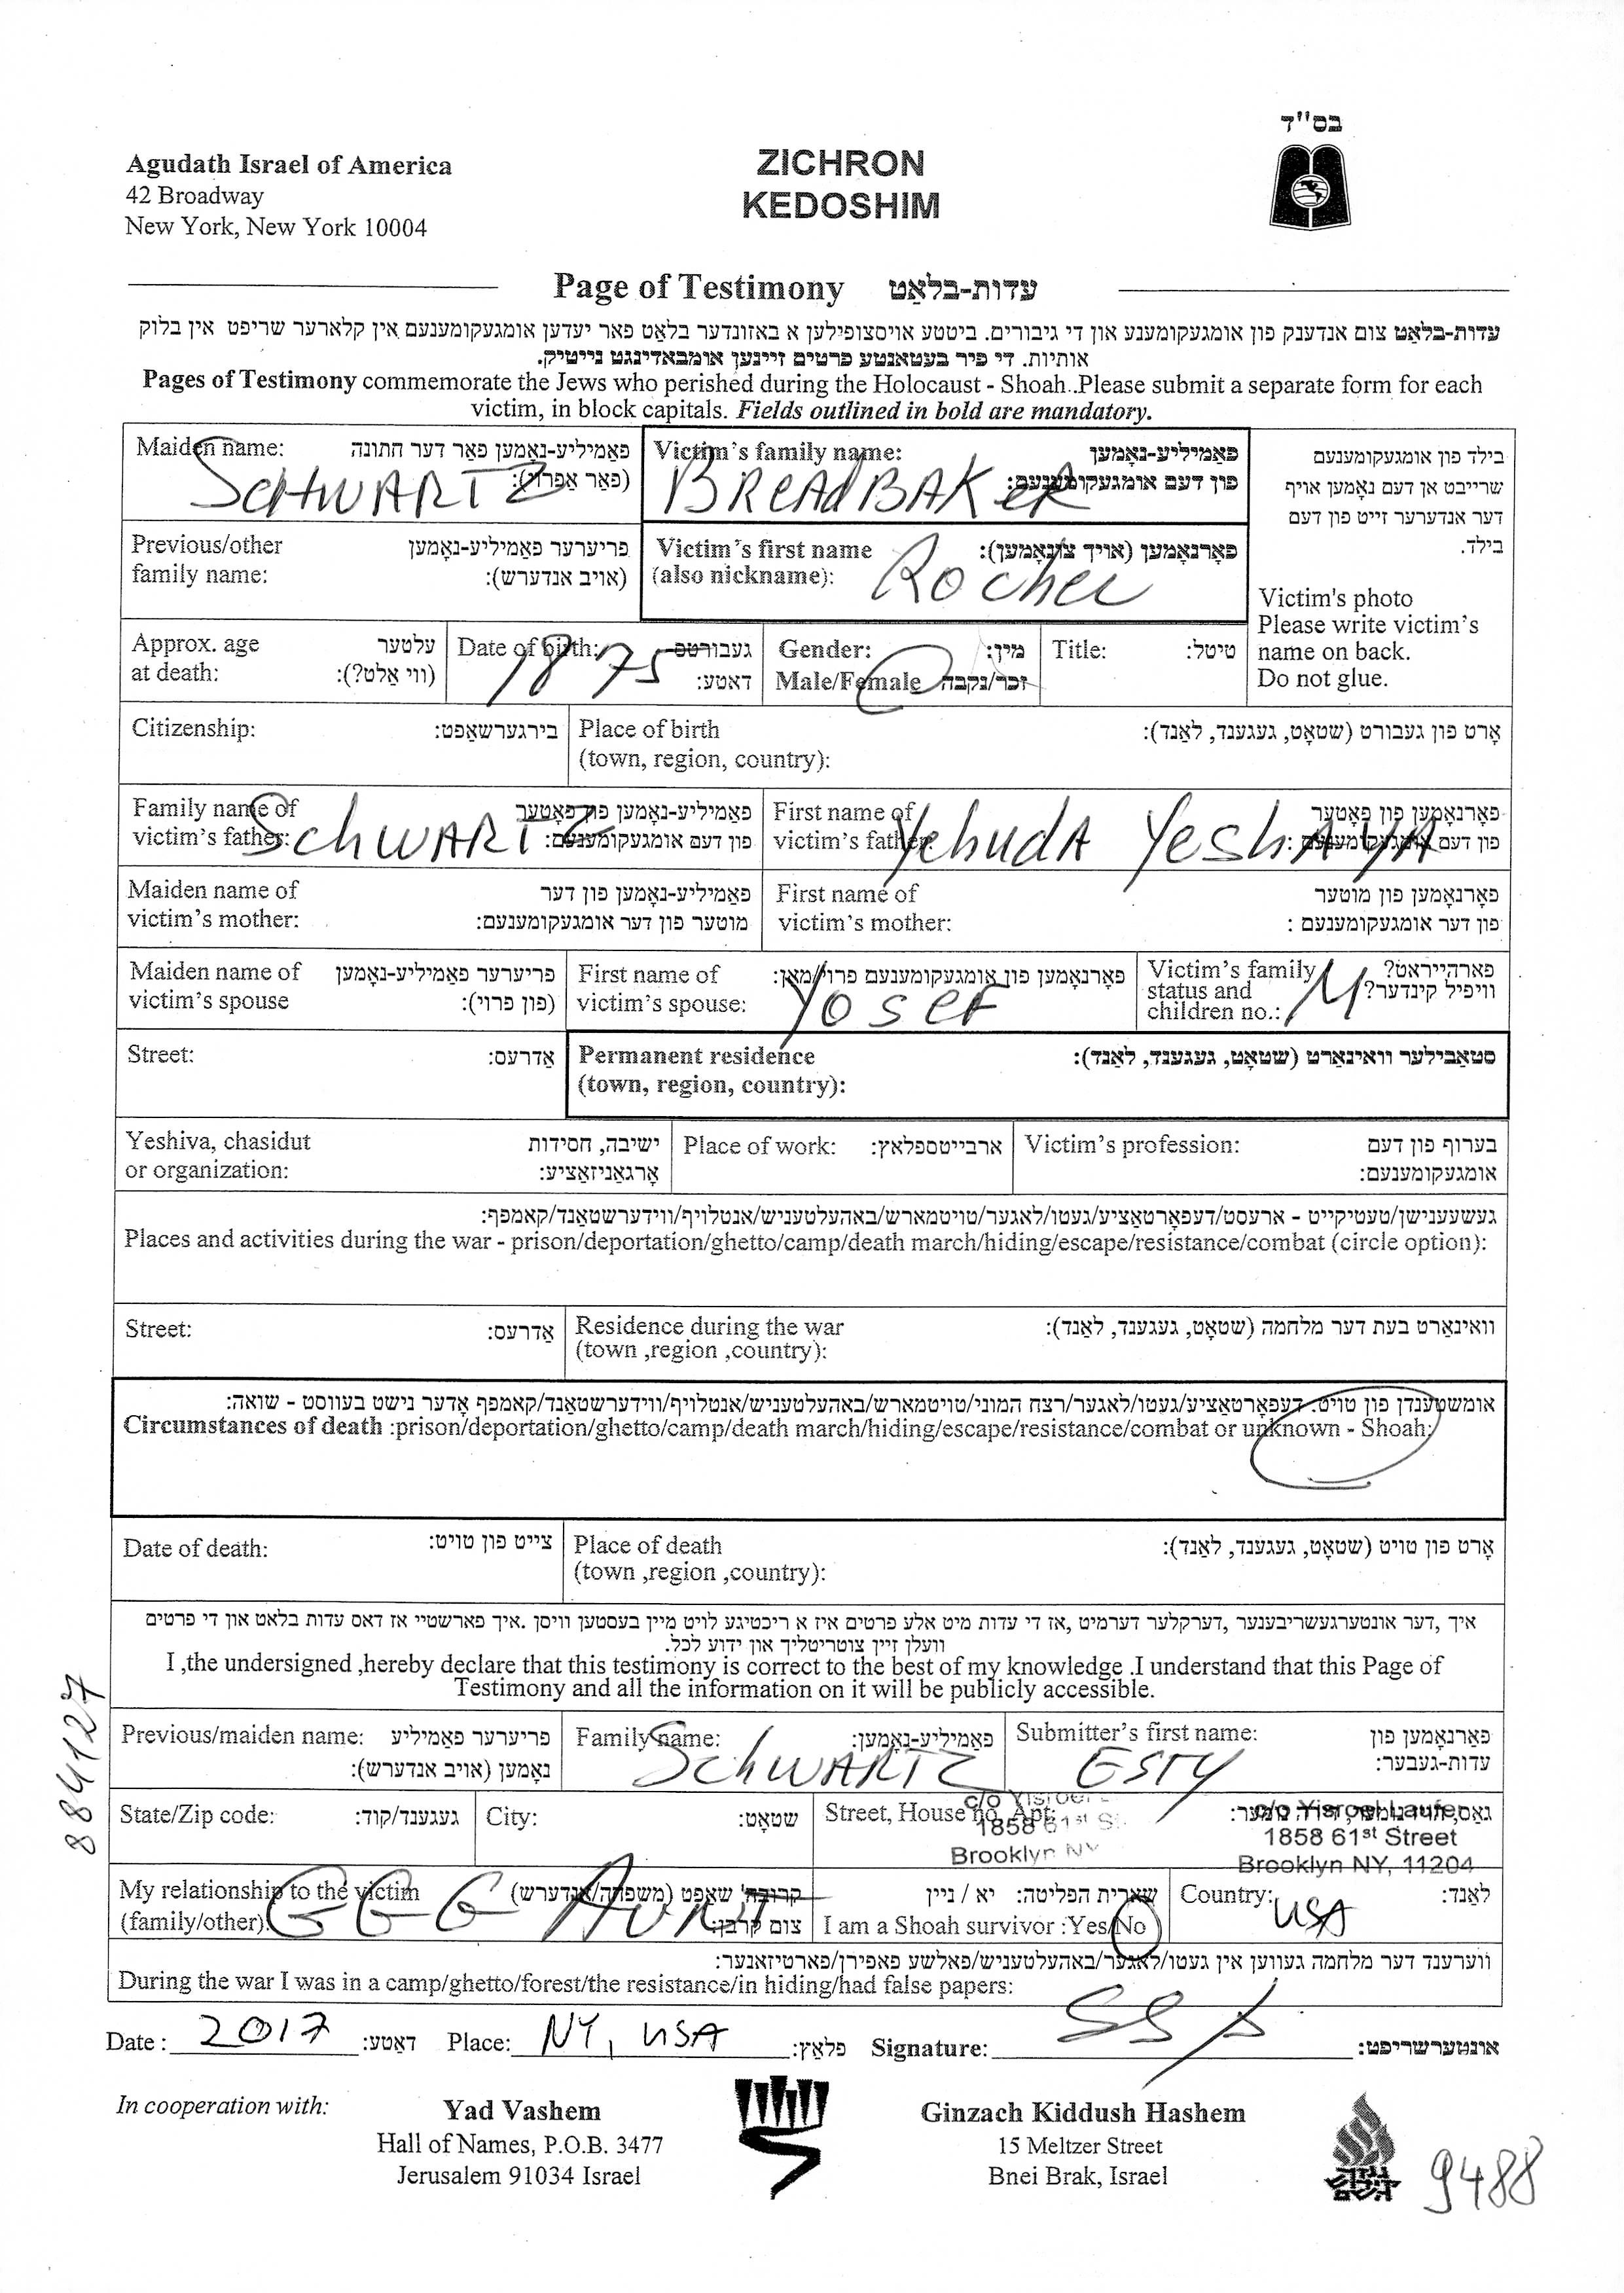 בס"ד
Agudath Israel of America
42 Broadway
New York, New York 10004
ZICHRON
KEDOSHIM
Page of Testimony עדות-בלאַט
עדות-בלאַט צום אנדענק פון אומגעקומענע און די גיבורים. ביטטע אויסצופילען א באזונדער בלאט פאר יעדען אומגעקומענעם אין קלארער שריפט אין בלוק
אותיות. די פיר בעטאנטע פרטים זיינען אומבאדינגט נייטיק.
Pages of Testimony commemorate the Jews who perished during the Holocaust - Shoah..Please submit a separate form for each
victim, in block capitals. Fields outlined in bold are mandatory.
Maiden name: פאַמיליע-נאָמען פאַר דער חתונה
SCHWARTZ
Victim's family name: פאַמיליע-נאָמען
פון דעם אומגעקומענעם:
BREADBAKER
Previous/other פריערער פאַמיליע-נאָמען
family name: (אויב אנדערש):
Victim's first name פאָרנאָמען (אויך צונאָמען):
(also nickname): Rochel
בילד פון אומגעקומענעם
שרייבט אן דעם נאָמען אויף
דער אנדערער זייט פון דעם
בילד.
Victim's photo
Please write victim's
name on back.
Do not glue.
Approx. age עלטער
at death: (ווי אַלט?):
Date of birth: געבורטס-
דאַטע:
1875
Gender: מין:
Male/Female זכר/נקבה
Title: טיטל:
Citizenship: בירגערשאַפט:
Place of birth אָרט פון געבורט (שטאָט, געגענד, לאַנד):
(town, region, country):
Family name of פאַמיליע-נאָמען פון פאָטער
victim's father: פון דעם אומגעקומענעם:
SchWARTZ
First name of פאָרנאָמען פון פאָטער
victim's father: פון דעם אומגעקומענעם :
YehudA YeshAYA
Maiden name of פאַמיליע-נאָמען פון דער
victim's mother: מוטער פון דער אומגעקומענעם:
First name of פאָרנאָמען פון מוטער
victim's mother: פון דער אומגעקומענעם :
Maiden name of פריערער פאַמיליע-נאָמען
victim's spouse (פון פרוי):
First name of פאָרנאָמען פון אומגעקומענעם פרוי/מאַן:
victim's spouse: YOSEF
Victim's family פארהייראט?
status and וויפיל קינדער?
children no.: M
Street: אַדרעס:
Permanent residence סטאַבילער וואוינאָרט (שטאָט, געגענד, לאַנד):
(town, region, country):
Yeshiva, chasidut ישיבה, חסידות
or organization: אָרגאַניזאַציע:
Place of work: ארבייטספלאץ:
Victim's profession: בערוף פון דעם
אומגעקומענעם:
געשעענישן/טעטיקייט - ארעסט/דעפאָרטאַציע/געטו/לאגער/טויטמארש/באהעלטעניש/אנטלויף/ווידערשטאַנד/קאמפף:
Places and activities during the war - prison/deportation/ghetto/camp/death march/hiding/escape/resistance/combat (circle option):
Street: אַדרעס:
Residence during the war וואוינאָרט בעת דער מלחמה (שטאָט, געגענד, לאַנד):
(town ,region ,country):
אומשטענדן פון טויט: דעפאָרטאַציע/געטו/לאגער/רצח המוני/טויטמארש/באהעלטעניש/אנטלויף/ווידערשטאַנד/קאמפף אָדער נישט בעוואוסט - שואה:
Circumstances of death :prison/deportation/ghetto/camp/death march/hiding/escape/resistance/combat or unknown - Shoah:
Date of death: צייט פון טויט:
Place of death אָרט פון טויט (שטאָט, געגענד, לאַנד):
(town ,region ,country):
איך ,דער אונטערגעשריבענער ,דערקלער דערמיט ,אז די עדות מיט אלע פרטים איז א ריכטיגע לויט מיין בעסטען וויסן .איך פארשטיי אז דאס עדות בלאט און די פרטים
וועלן זיין צוטריטליך און ידוע לכל.
I ,the undersigned ,hereby declare that this testimony is correct to the best of my knowledge .I understand that this Page of
Testimony and all the information on it will be publicly accessible.
884127
Previous/maiden name: פריערער פאַמיליע
נאָמען (אויב אנדערש):
Family name: פאַמיליע-נאָמען:
SchWARTZ
Submitter's first name: פאָרנאָמען פון
עדות-געבער:
ESTY
State/Zip code: געגענד/קוד:
City: שטאָט:
Street, House no, Apt:
c/o Yisroel
1858 61st S
Brooklyn NY
c/o Yisroel Laufer
1858 61st Street
Brooklyn NY, 11204
My relationship to the victim קרובה' שאַפט (משפחה/אַנדערש)
(family/other): צום קרבן:
GGG AUNT
שארית הפליטה: יא / ניין
I am a Shoah survivor :Yes/No
Country: לאַנד:
USA
ווערענד דער מלחמה געווען אין געטו/לאגער/באהעלטעניש/פאלשע פאפירן/פארטיזאנער:
During the war I was in a camp/ghetto/forest/the resistance/in hiding/had false papers:
Date : 2017 דאַטע: Place: NY, USA פלאַץ: Signature: אונטערשריפט:
In cooperation with:
Yad Vashem
Hall of Names, P.O.B. 3477
Jerusalem 91034 Israel
Ginzach Kiddush Hashem
15 Meltzer Street
Bnei Brak, Israel
9488